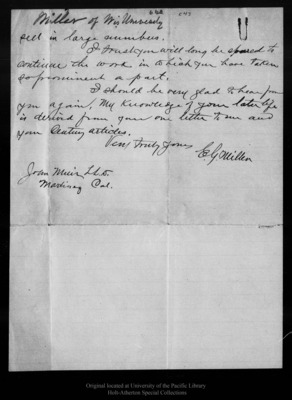 Miller of Wis University
sell in large numbers.
I trust you will long be spared to
continue the work in which you have taken
so prominent a part.
I should be very glad to hear from
you again. My knowledge of your later life
is derived from your one letter to me and
your Century articles.
Very Truly Yours
E G Miller
John Muir LL.D.
Martinez Cal.
Original located at University of the Pacific Library
Holt-Atherton Special Collections